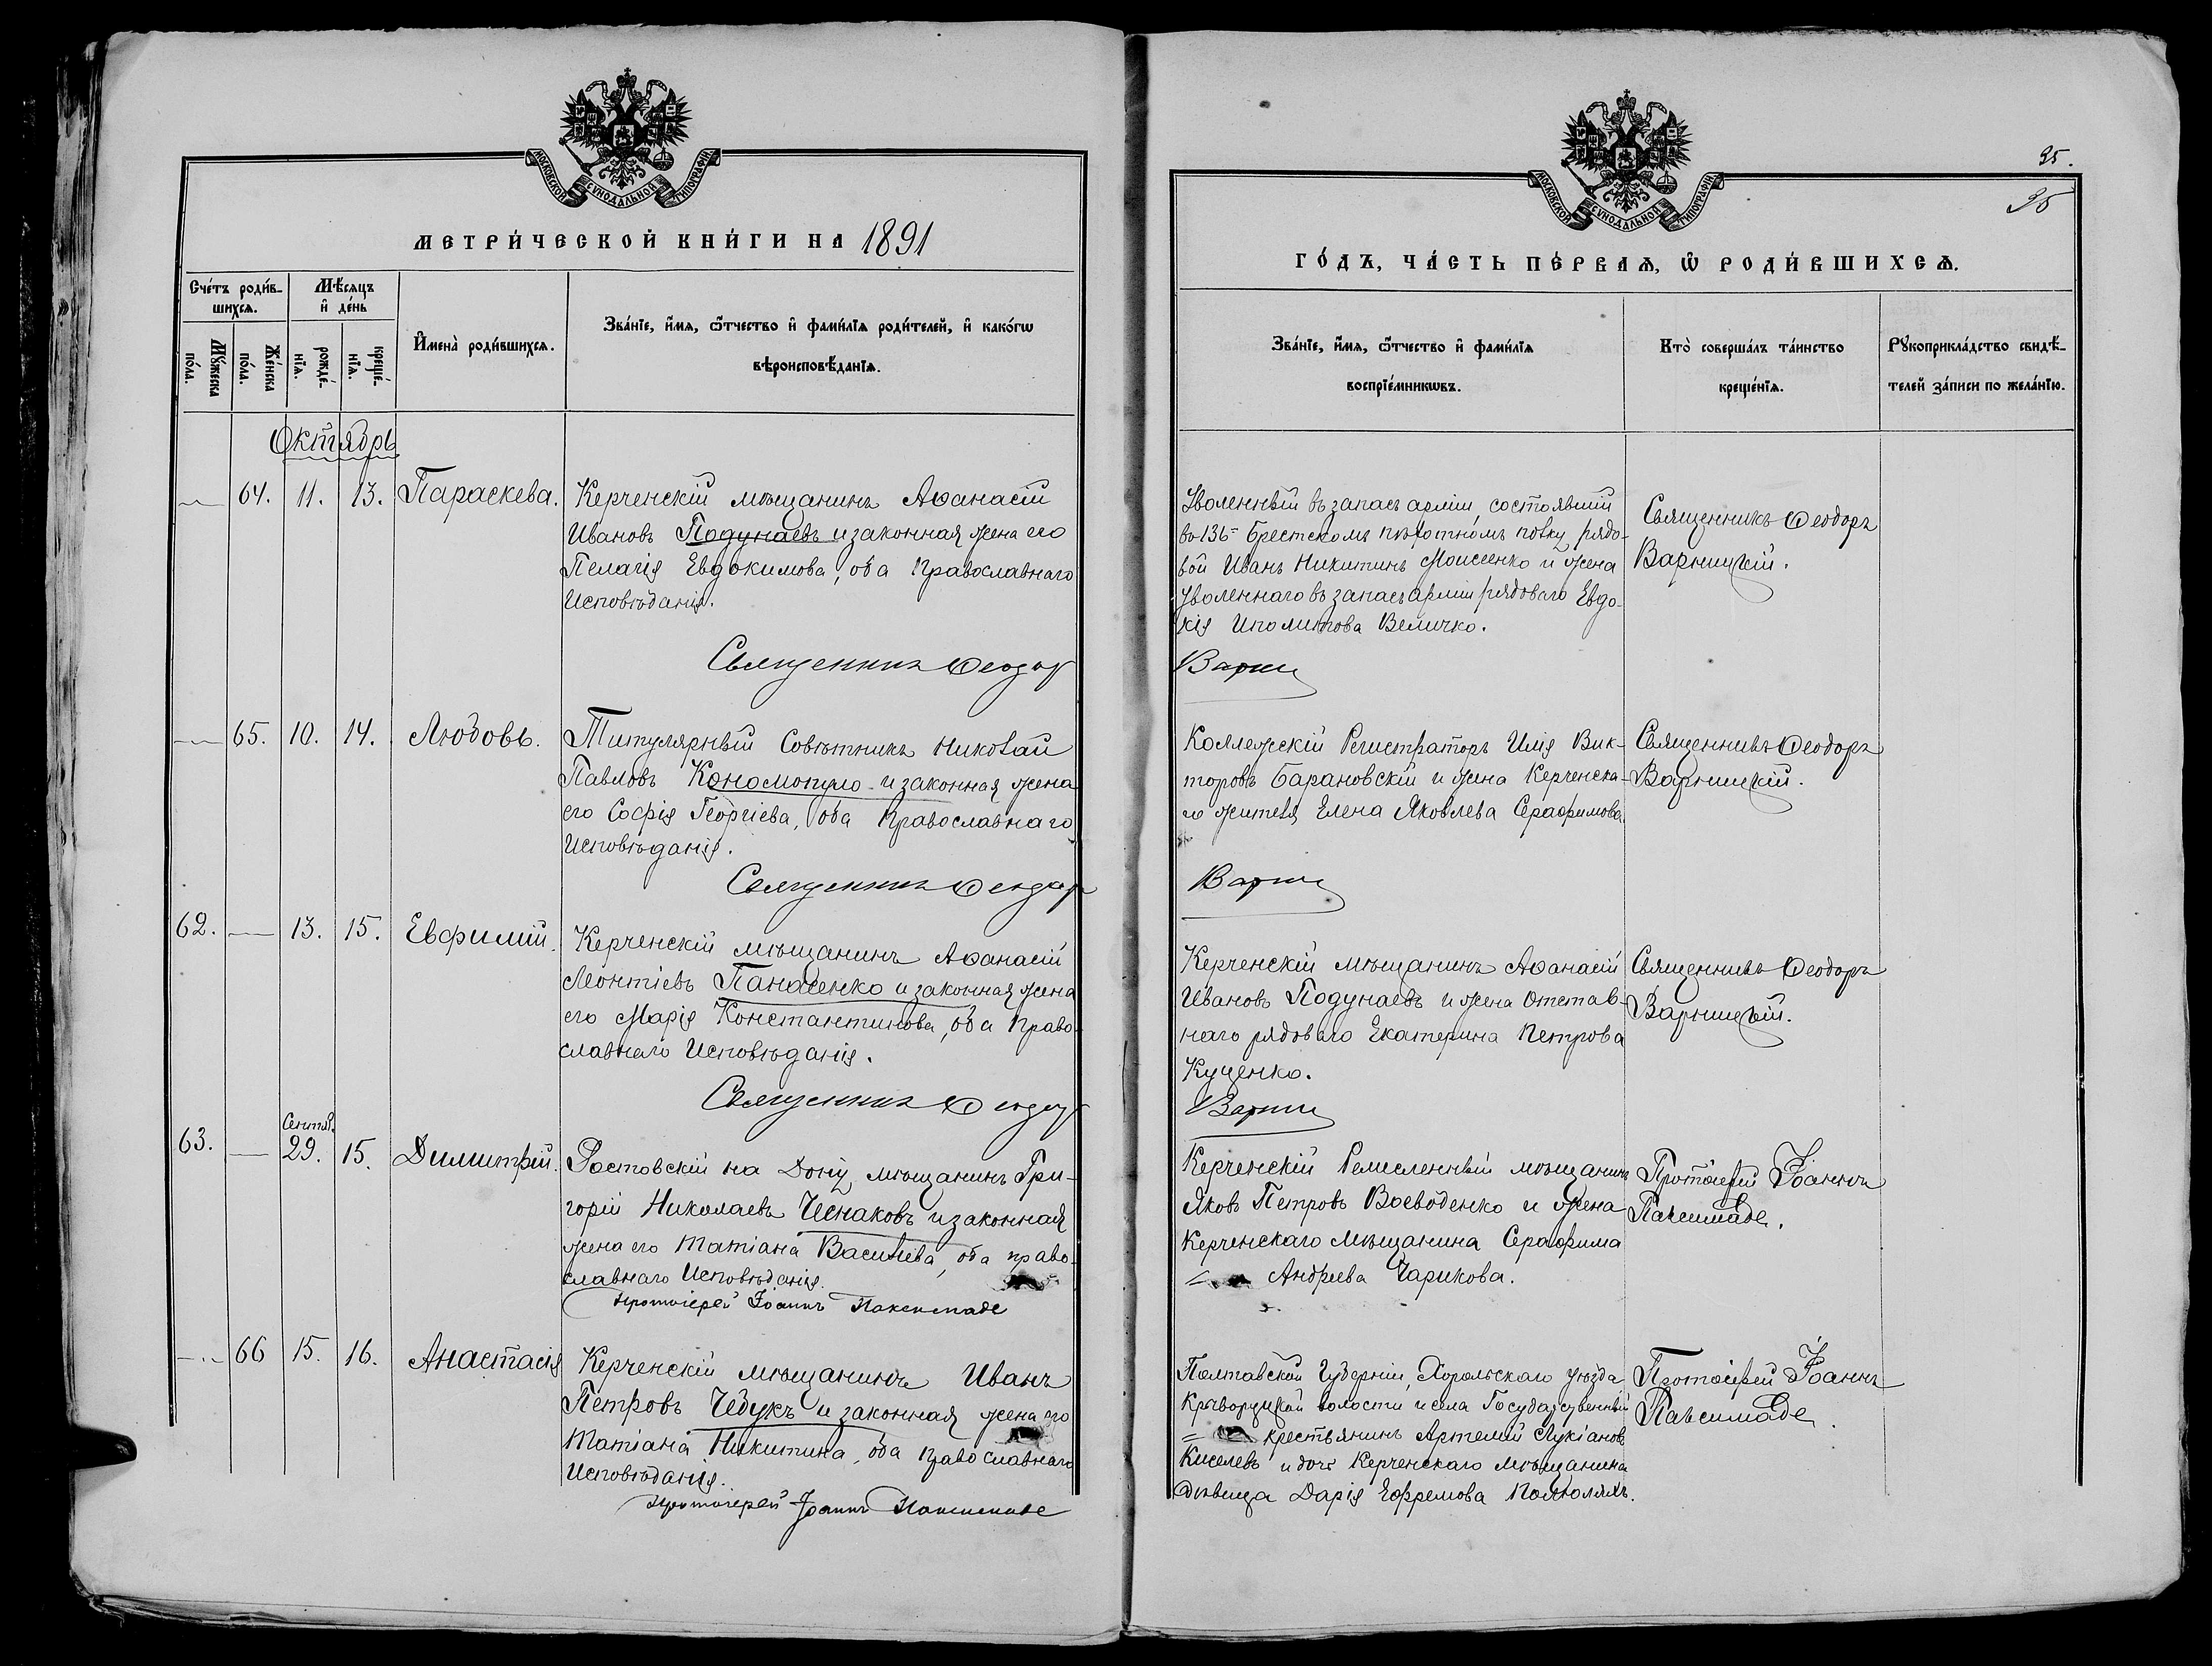 МОСКОВСКОЙ СѴНОДАЛЬНОЙ ТИПОГРАФІИ
МЕТРИ́ЧЕСКОЙ КНИ́ГИ НА 1891
Сче́тъ роди́в-
шихсѧ.
Мѣ́сѧцъ
и҆ де́нь
Мꙋ́жеска
по́ла.
Же́нска
по́ла.
рожде́-
нїѧ.
креще́-
нїѧ.
И҆мена̀ роди́вшихсѧ.
Зва́нїе, и҆́мѧ, ѻ҆́тчество и҆ фами́лїѧ роди́телей, и҆ како́гѡ
вѣроисповѣ́данїѧ.
Октябрь
64. 11. 13. Параскева.
Керченскій мѣщанинъ Аѳанасій
Ивановъ Подунаевъ и законная жена его
Пелагія Евдокимова, оба Православнаго
Исповѣданія.
Священникъ Ѳеодор
65. 10. 14. Любовь.
Титулярный Совѣтникъ Николай
Павловъ Кономопуло и законная жена
его Софія Георгіева, оба Православнаго
Исповѣданія.
Священникъ Ѳеодор
62. 13. 15. Евфимій.
Керченскій мѣщанинъ Аѳанасій
Леонтіевъ Панасенко и законная жена
его Марія Константинова, оба Право-
славнаго Исповѣданія.
Священникъ Ѳеодор
63. Сентяб. 29. 15. Димитрій.
Ростовскій на Дону мѣщанинъ Гри-
горій Николаевъ Чеснаковъ и законная
жена его Татіана Васильева, оба право-
славнаго Исповѣданія.
Протоіерей Іоаннъ Паксимаде
66 15. 16. Анастасія
Керченскій мѣщанинъ Иванъ
Петровъ Чебукъ и законная жена его
Татіана Никитина, оба Православнаго
Исповѣданія.
Протоіерей Іоаннъ Паксимаде
МОСКОВСКОЙ СѴНОДАЛЬНОЙ ТИПОГРАФІИ
35.
35
ГО́ДЪ, ЧА́СТЬ ПЕ́РВАѦ, Ѡ҆ РОДИ́ВШИХСѦ.
Зва́нїе, и҆́мѧ, ѻ҆́тчество и҆ фами́лїѧ
воспрїе́мникѡвъ.
Кто̀ соверша́лъ та́инство
креще́нїѧ.
Рꙋкоприкла́дство свидѣ́-
телей за́писи по жела́нїю.
Уволенный въ запасъ арміи, состоявшій
въ 136= Брестскомъ пѣхотномъ полку рядо-
вой Иванъ Никитинъ Моисеенко и жена
уволеннаго въ запасъ арміи рядоваго Евдо-
кія Иполитова Величко.
Священникъ Ѳеодоръ
Варницкій.
Варни
Коллежскій Регистраторъ Илія Вик-
торовъ Барановскій и жена Керченска-
го жителя Елена Яковлева Серафимова
Священникъ Ѳеодоръ
Варницкій.
Варни
Керченскій мѣщанинъ Аѳанасій
Ивановъ Подунаевъ и жена отстав-
наго рядоваго Екатерина Петрова
Куценко.
Священникъ Ѳеодоръ
Варницкій.
Варни
Керченскій Ремесленный мѣщанинъ
Яковъ Петровъ Воеводенко и жена
Керченскаго Мѣщанина Серафима
Андреева Чарикова.
Протоіерей Іоаннъ
Паксимаде.
Полтавской Губерніи, Хорольскаго уѣзда
волости и села Государственный
крестьянинъ Артемій Лукіановъ
Киселевъ и дочь Керченскаго Мѣщанина
дѣвица Дарія Ефремова
Протоіерей Іоаннъ
Паксимаде.